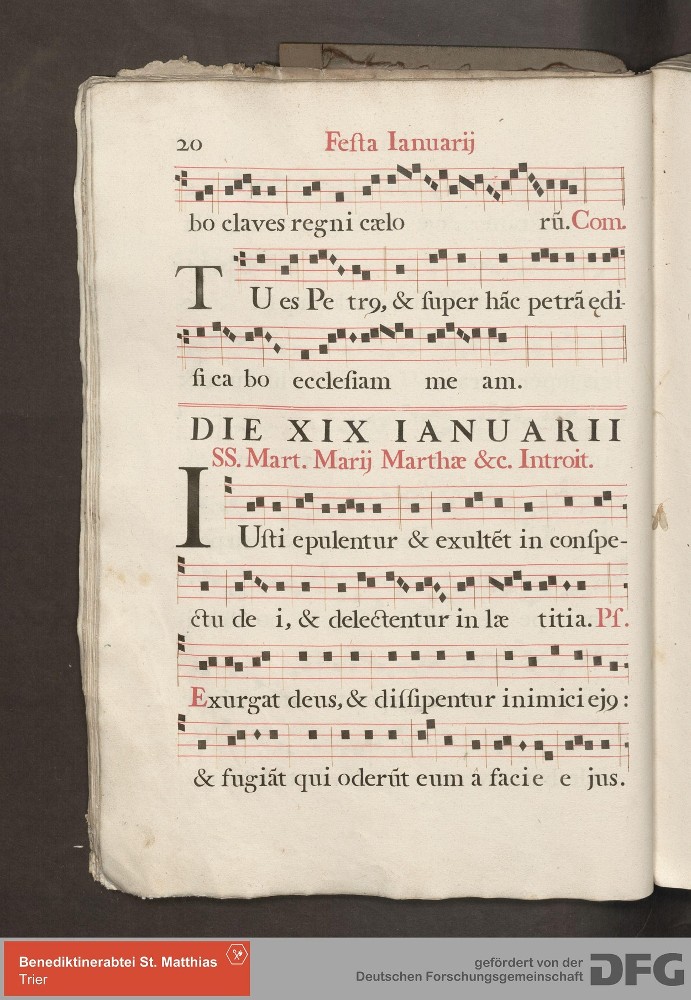 20 Feſta Ianuarij
bo claves regni cælo rū. Com.
TU es Pe trꝯ, & ſuper hāc petrā ędi-
fi ca bo eccleſiam me am.
DIE XIX IANUARII
SS. Mart. Marij Marthæ &c. Introit.
IUſti epulentur & exultēt in conſpe-
ctu de i, & delectentur in læ titia. Pſ.
Exurgat deus, & diſſipentur inimici ejꝯ :
& fugiāt qui oderūt eum â facie e jus.
Benediktinerabtei St. Matthias
Trier
gefördert von der
Deutschen Forschungsgemeinschaft
DFG